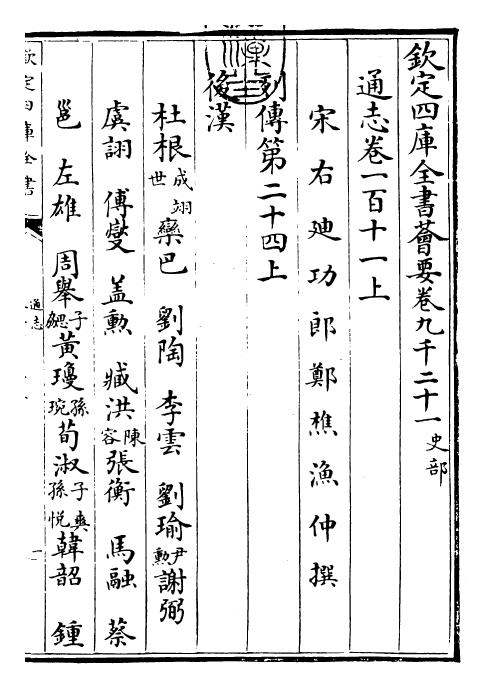 欽定四庫全書薈要卷九千二十一 史部
通志卷一百十一上
宋右廸功郎鄭樵漁仲撰
列傳第二十四上
後漢
杜根 成翊世 欒巴 劉陶 李雲 劉瑜 尹勲 謝弼
虞詡 傅燮 蓋勲 臧洪 陳容 張衡 馬融 蔡
邕 左雄 周舉 子勰 黃瓊 孫琬 荀淑 子爽 孫悅 韓韶 鍾
欽定四庫全書
通志
一